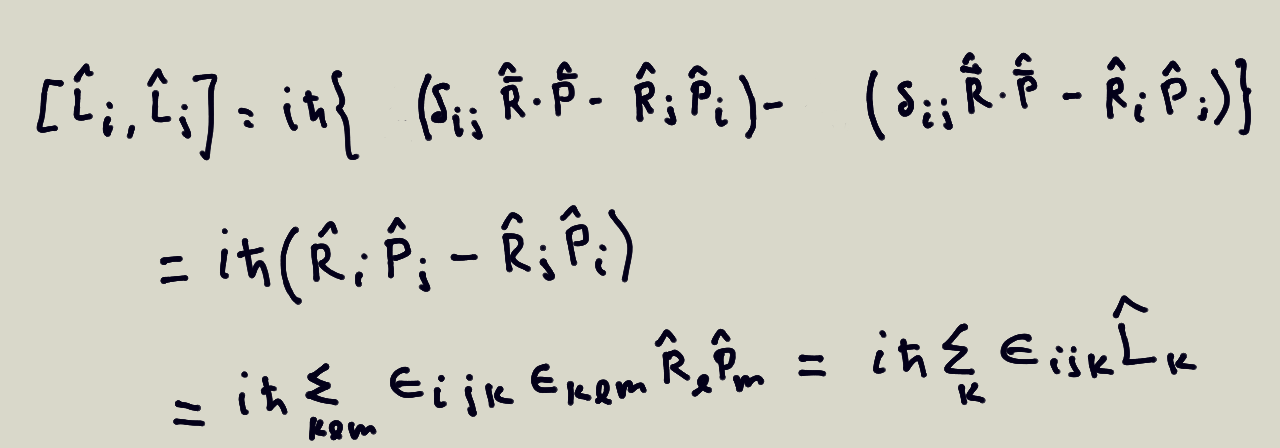 [L̂ᵢ, L̂ⱼ] = iħ{ (δᵢⱼ R̂̄·P̂̄ - R̂ⱼ P̂ᵢ) - (δᵢⱼ R̂̄·P̂̄ - R̂ᵢ P̂ⱼ)}
= iħ(R̂ᵢ P̂ⱼ - R̂ⱼ P̂ᵢ)
= iħ Σₖₗₘ ϵᵢⱼₖ ϵₖₗₘ R̂ₗ P̂ₘ = iħ Σₖ ϵᵢⱼₖ L̂ₖ